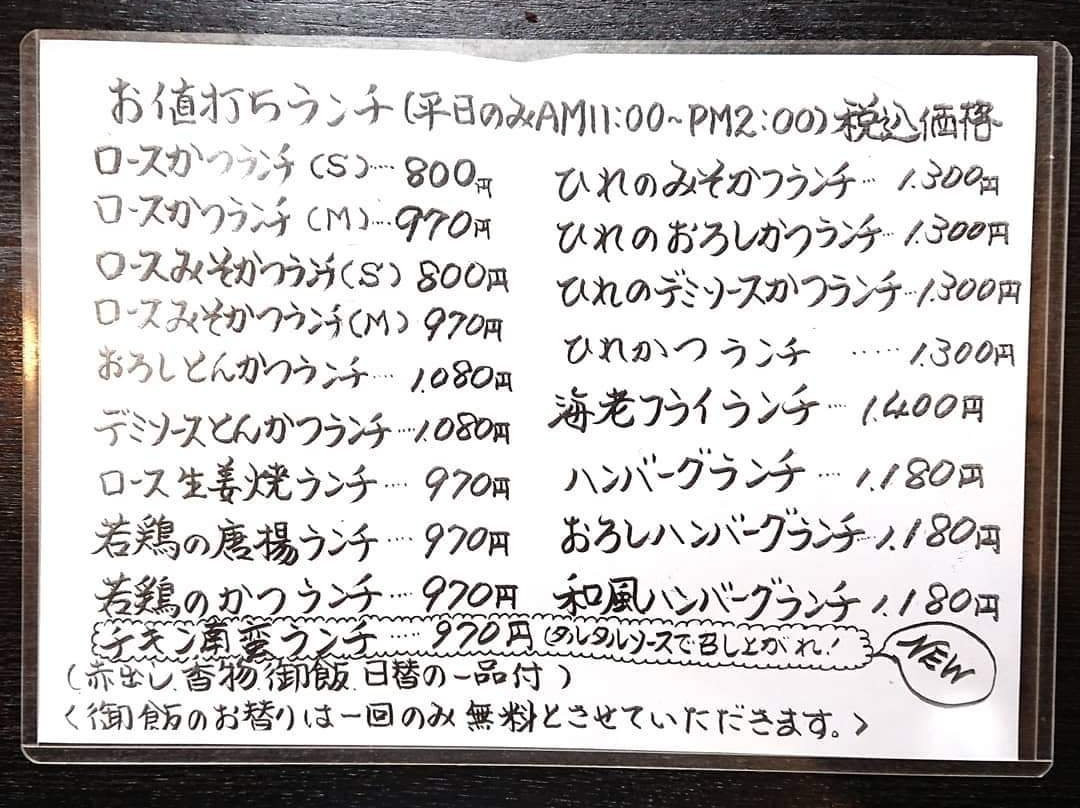 お値打ちランチ(平日のみAM11:00~PM2:00)税込価格
ロースかつランチ(S)…800円
ロースかつランチ(M)…970円
ロースみそかつランチ(S) 800円
ロースみそかつランチ(M) 970円
おろしとんかつランチ… 1.080円
デミソースとんかつランチ…1.080円
ロース生姜焼ランチ… 970円
若鶏の唐揚ランチ… 970円
若鶏のかつランチ… 970円
チキン南蛮ランチ…… 970円(タルタルソースで召し上がれ!
NEW
ひれのみそかつランチ… 1.300円
ひれのおろしかつランチ…1.300円
ひれのデミソースかつランチ…1.300円
ひれかつランチ ‥‥‥ 1.300円
海老フライランチ… 1.400円
ハンバーグランチ… 1.180円
おろしハンバーグランチ…1.180円
和風ハンバーグランチ 1.180円
(赤出し 香物 御飯 日替の一品付)
<御飯のお替りは一回のみ無料とさせていただきます。>